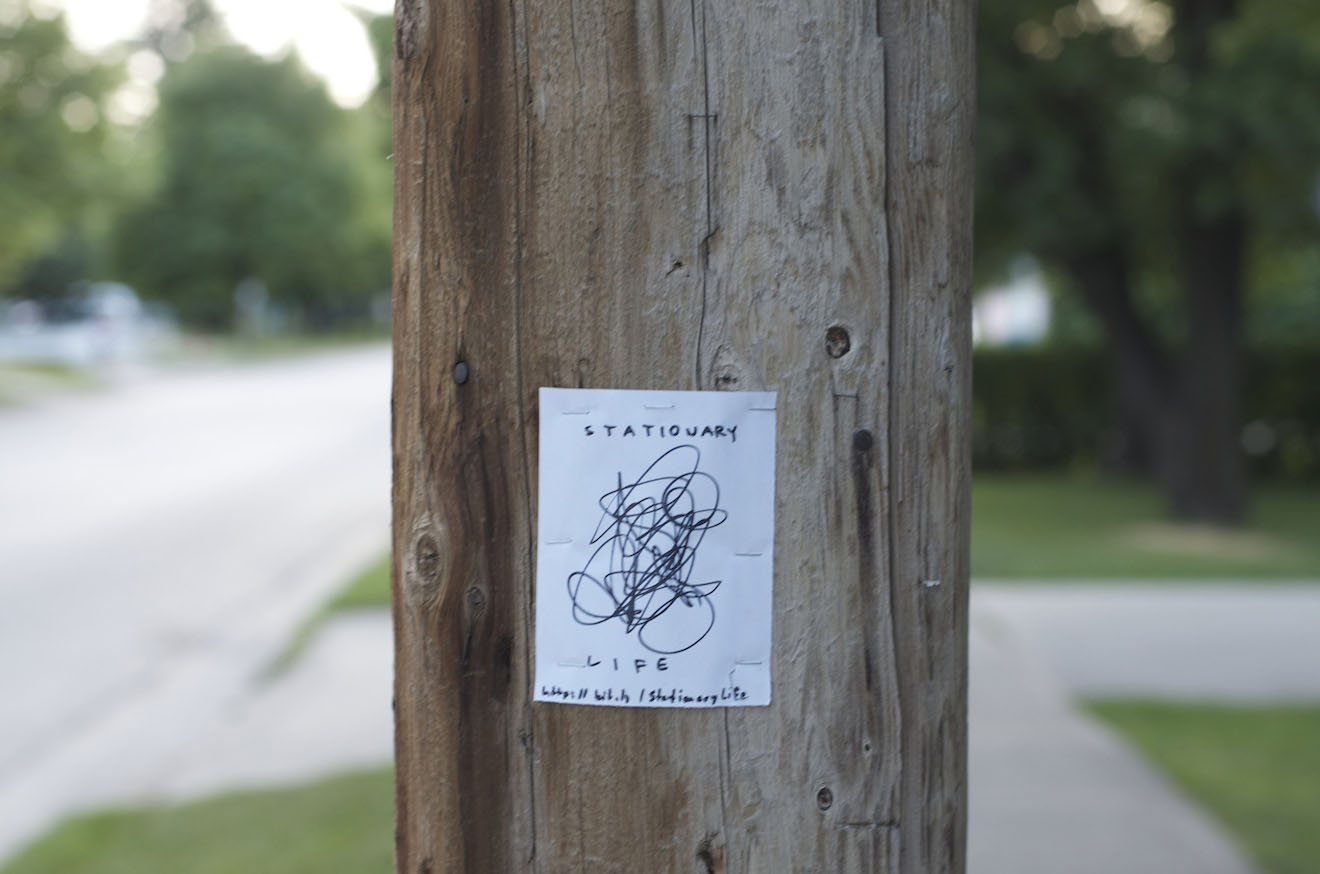 STATIONARY
LIFE
https://bit.ly/StationaryLife